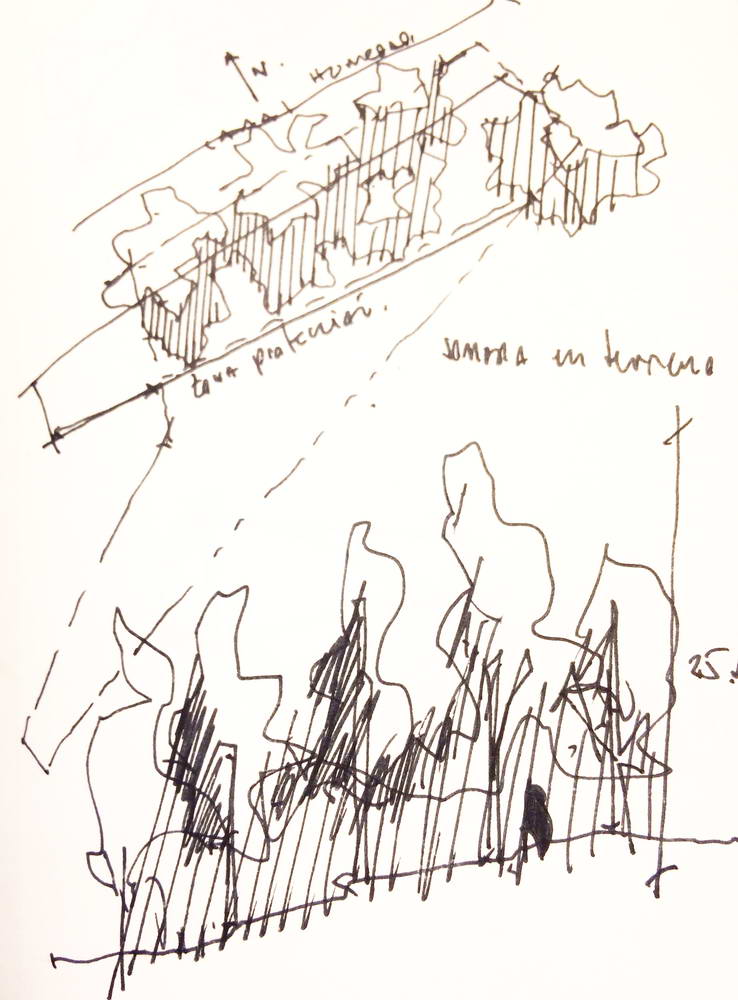 N.
HUMEDAL
zona protección.
sombra en terreno
25.